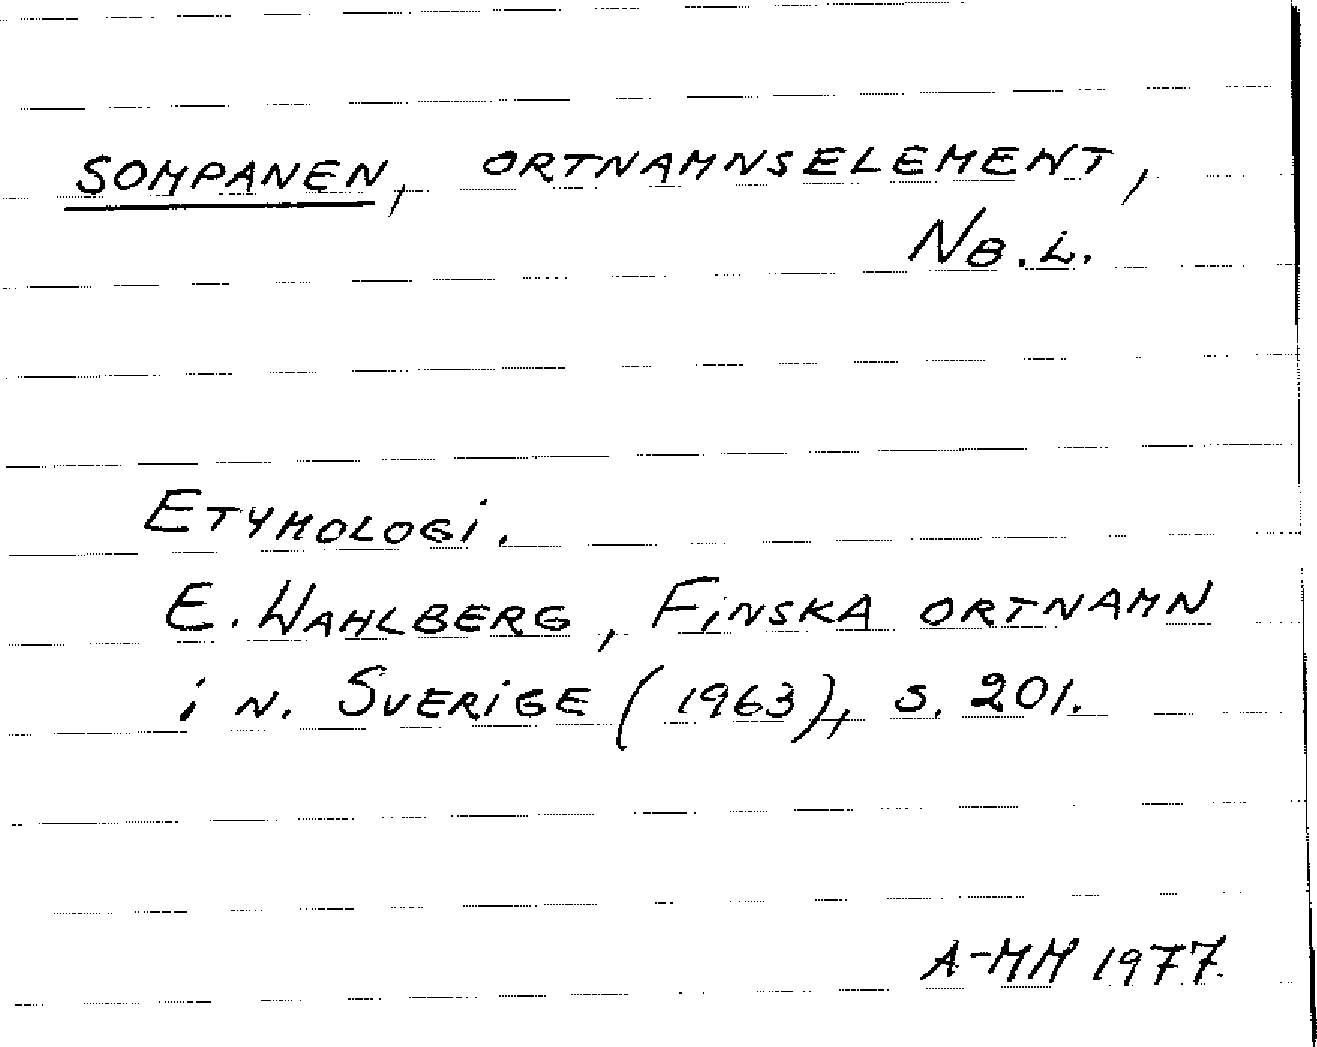 SOMPANEN, ORTNAMNSELEMENT,
NB.L.
ETYMOLOGI.
E. WAHLBERG, FINSKA ORTNAMN
i N. SVERIGE (1963), S. 201.
A-MM 1977